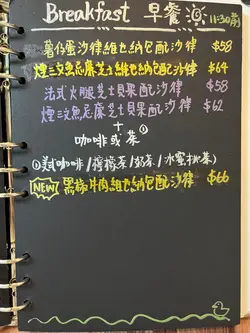 Breakfast 早餐 11:30前
薯仔蛋沙律維也納包配沙律 $58
煙三文魚忌廉芝士維也納包配沙律 $64
法式火腿芝士貝果配沙律 $58
煙三文魚忌廉芝士貝果配沙律 $62
+
咖啡或茶①
①美式咖啡/檸檬茶/奶茶/冰蜜桃茶)
NEW! 黑椒牛肉維也納包配沙律 $66